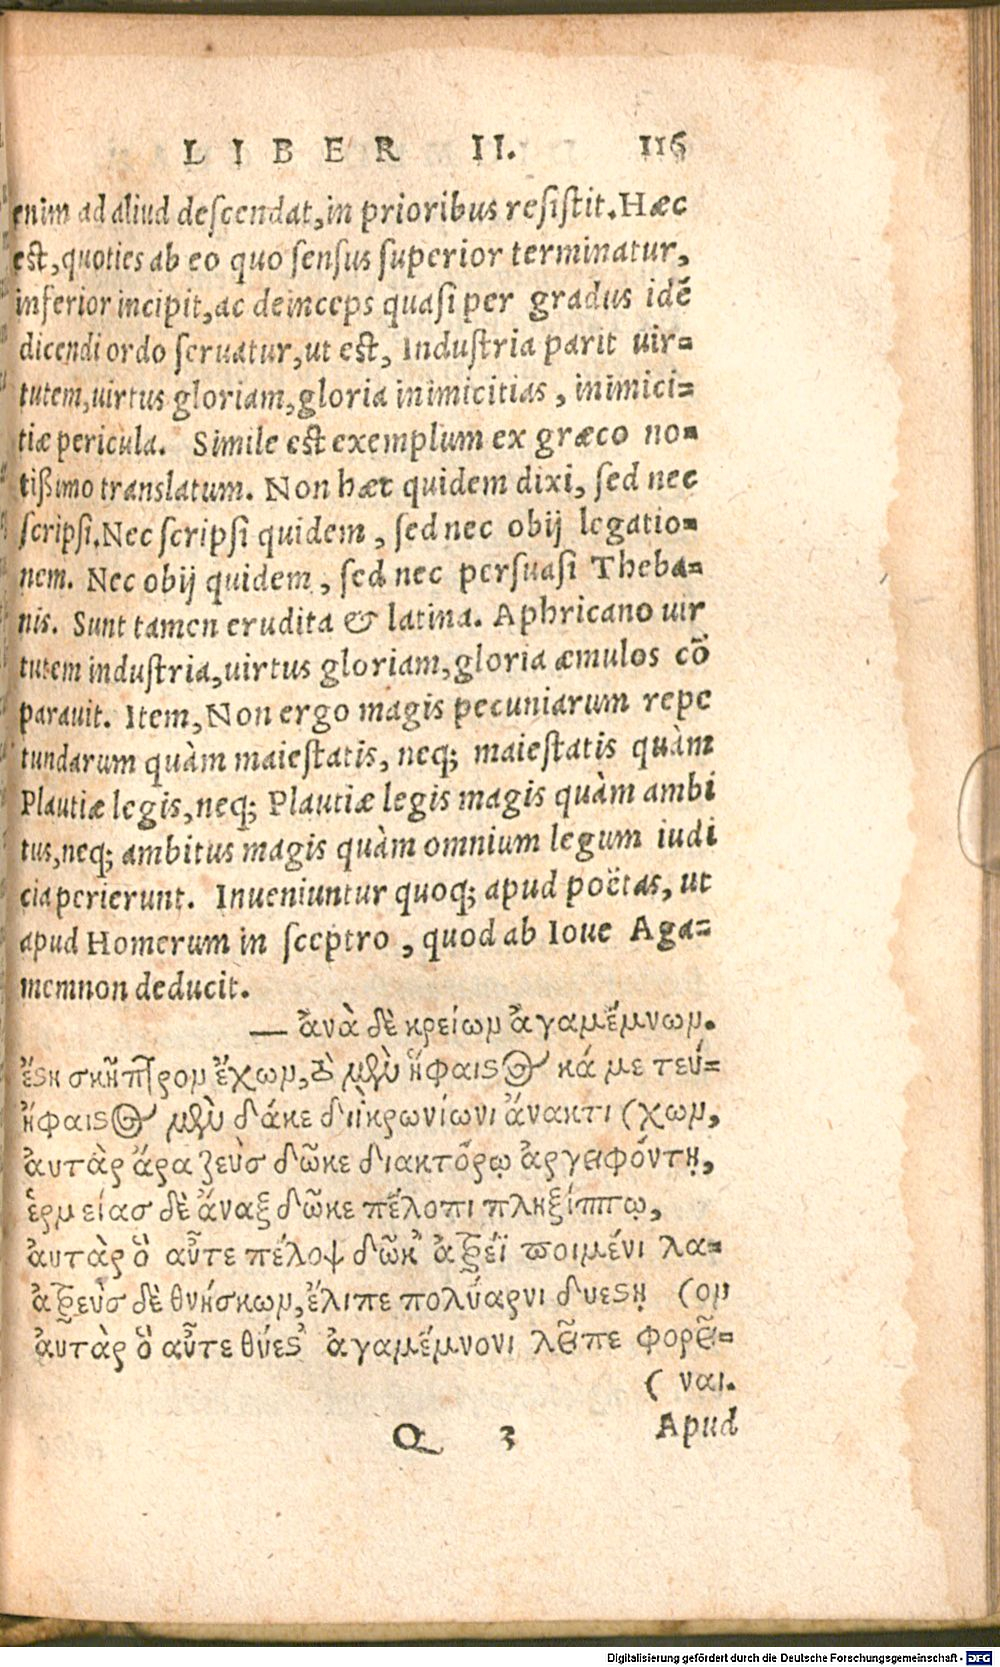 LIBER II. 116
enim ad aliud descendat, in prioribus resistit. Hæc
est, quoties ab eo quo sensus superior terminatur,
inferior incipit, ac deinceps quasi per gradus idē
dicendi ordo seruatur, ut est, Industria parit uir-
tutem, uirtus gloriam, gloria inimicitias, inimici-
tiæ pericula. Simile est exemplum ex græco no-
tißimo translatum. Non hæc quidem dixi, sed nec
scripsi. Nec scripsi quidem, sed nec obij legatio-
nem. Nec obij quidem, sed nec persuasi Theba-
nis. Sunt tamen erudita & latina. Aphricano uir
tutem industria, uirtus gloriam, gloria æmulos cō
parauit. Item, Non ergo magis pecuniarum repe
tundarum quàm maiestatis, neq; maiestatis quàm
Plautiæ legis, neq; Plautiæ legis magis quàm ambi
tus, neq; ambitus magis quàm omnium legum iudi
cia perierunt. Inueniuntur quoq; apud poëtas, ut
apud Homerum in sceptro, quod ab Ioue Aga-
memnon deducit.
— ἀνὰ δὲ κρείων ἀγαμέμνων.
ἔςη σκῆπτρον ἔχων, τὸ μὲν ἥφαιςος κάμε τεύ-
ἥφαιςος μὲν δῶκε διὶ κρωνίωνι ἄνακτι (χων,
αὐτὰρ ἄρα ζεὺσ δῶκε διακτόρῳ ἀργειφόντῃ,
ἑρμείασ δὲ ἄναξ δῶκε πέλοπι πληξίππῳ,
αὐτὰρ ὃ αὖτε πέλοψ δῶκ' ἀτρέϊ ποιμένι λα-
ἀτρεὺσ δὲ θνήσκων, ἔλιπε πολύαρνι θυέςῃ (ον
αὐτὰρ ὃ αὖτε θύες' ἀγαμέμνονι λεῖπε φορῆ-
( ναι.
Q 3 Apud
Digitalisierung gefördert durch die Deutsche Forschungsgemeinschaft - DFG